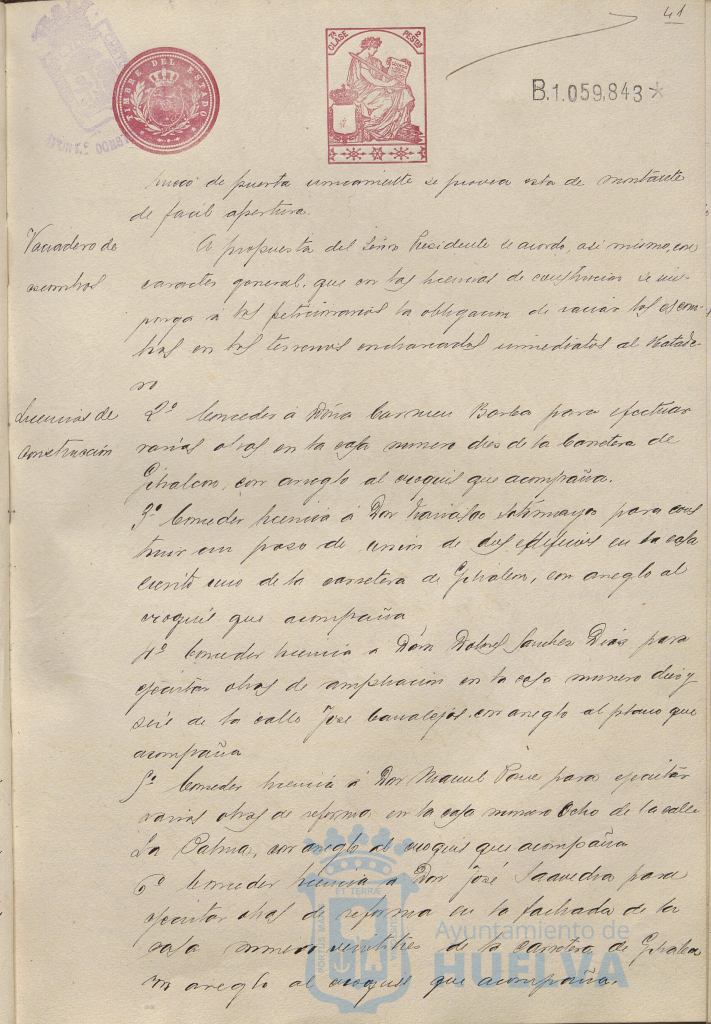 41
TIMBRE DEL ESTADO
7ª CLASE 2 PESTAS
B.1.059,843*
hueco de puerta unicamente se provea esta de montante
de facil apertura.
Vaciadero de
escombros
A propuesta del Señor Presidente se acordo, asi mismo, con
caracter general, que en las licencias de construccion se im-
ponga á los peticionarios la obligacion de vaciar los escom-
bros en los terrenos encharcados inmediatos al Matade-
ro
Licencias de
construcción
2º Conceder á Doña Carmen Barba para efectuar
varias obras en la casa numero dos de la Carretera de
Gibraleon, con arreglo al croquis que acompaña.
3º Conceder licencia á Don Sotomayor para cons
truir un paso de union de dos edificios en la casa
ciento uno de la carretera de Gibraleon, con arreglo al
croquis que acompaña
4º Conceder licencia á Doña Dolores Sanchez Diaz para
ejecutar obras de ampliacion en la casa numero diez y
seis de la calle José Canalejas, con arreglo al plano que
acompaña
5º Conceder licencia á Don Manuel para ejecutar
varias obras de reforma en la casa numero ocho de la calle
La Palma, con arreglo al croquis que acompaña
6º Conceder licencia á Don José Saavedra para
ejecutar obras de reforma en la fachada de la
casa numero veintitres de la carretera de Gibraleon
con arreglo al croquis que acompaña.
Ayuntamiento de
HUELVA